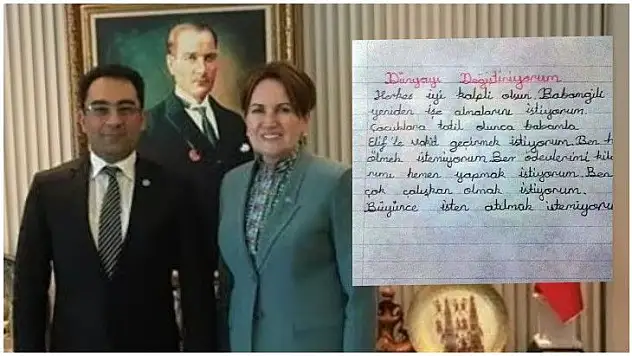 Dünyayı Değiştiriyorum
Herkes iyi kalpli olsun. Babamgili
yeniden işe almalarını istiyorum.
Çocuklara tatil olunca babamla
Elif'le vakit geçirmek istiyorum. Ben
ölmek istemiyorum. Ben ödevlerimi
hemen yapmak istiyorum. Ben
çok çalışkan olmak istiyorum.
Büyünce işten atılmak istemiyoru